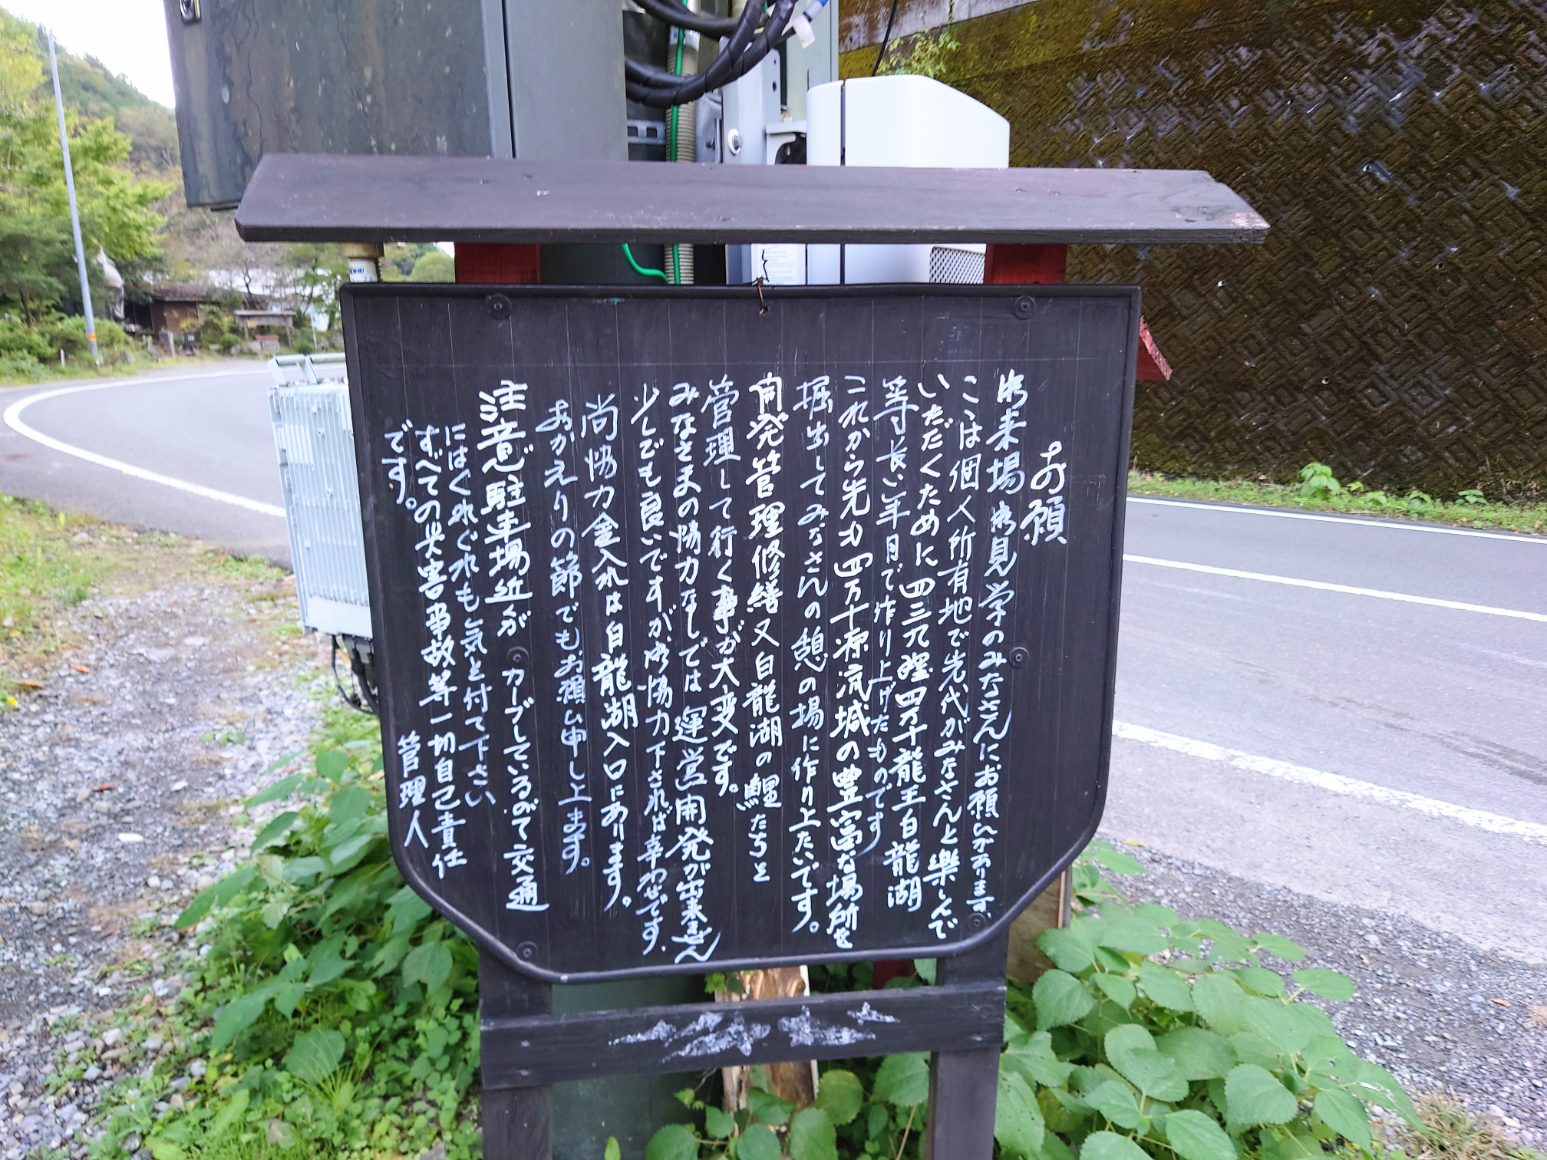 お願
御来場御見学のみなさんにお願いがあります、
ここは個人所有地で先代がみなさんと楽しんで
いただくために四三九経四万十龍王白龍湖
等長い年月で作り上げたものです
これから先も四万十源流域の豊富な場所を
掘出してみなさんの憩の場に作り上たいです。
開発管理修繕又白龍湖の鯉たちを
管理して行く事が大変です。
みなさまの協力なしでは運営開発が出来ません
少しでも良いですが御協力下されば幸わせです、
尚協力金入れは白龍湖入口にあります。
おかえりの節でもお願い申し上ます。
注意駐車場近が カーブしているので交通
にはくれぐれも気と付て下さい
すべての失害事故等一切自己責任
です。 管理人